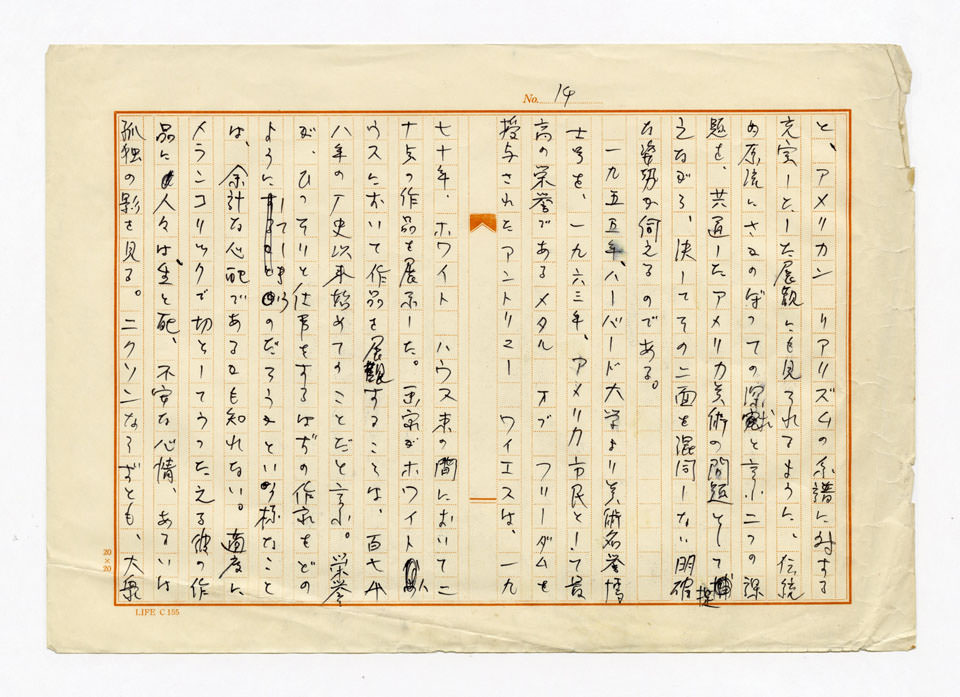 No. 14
と、アメリカン リアリズムの系譜に対する
充実しとした展観にも見られるように、伝統
の源流にさかのぼっての深究と言ふ二つの課
題を、共通したアメリカ美術の問題として捕捉
えながら、決してその二面を混同しない明確
な姿勢が伺えるのである。
一九五五年、ハーバード大学より美術名誉博
士号を、一九六三年、アメリカ市民として最
高の栄誉であるメタル オブ フリーダムを
授与されたアンドリュー ワイエスは、一九
七十年、ホワイト ハウス東の間において二
十点の作品を展示した。画家がホワイト ハ
ウスにおいて作品を展観することは、百七十
八年の丁史以来始めてのことだと言ふ。栄誉
が、ひっそりと仕事をするはずの作家をどの
ようにしてしまうのだろうかという様なこと
は、余計な心配であるかも知れない。適度に
メランコリックで切としてうったえる彼の作
品に人々は、生と死、不安な心情、あるいは
孤独の影を見る。ニクソンならずとも、大衆
20×20
LIFE C155